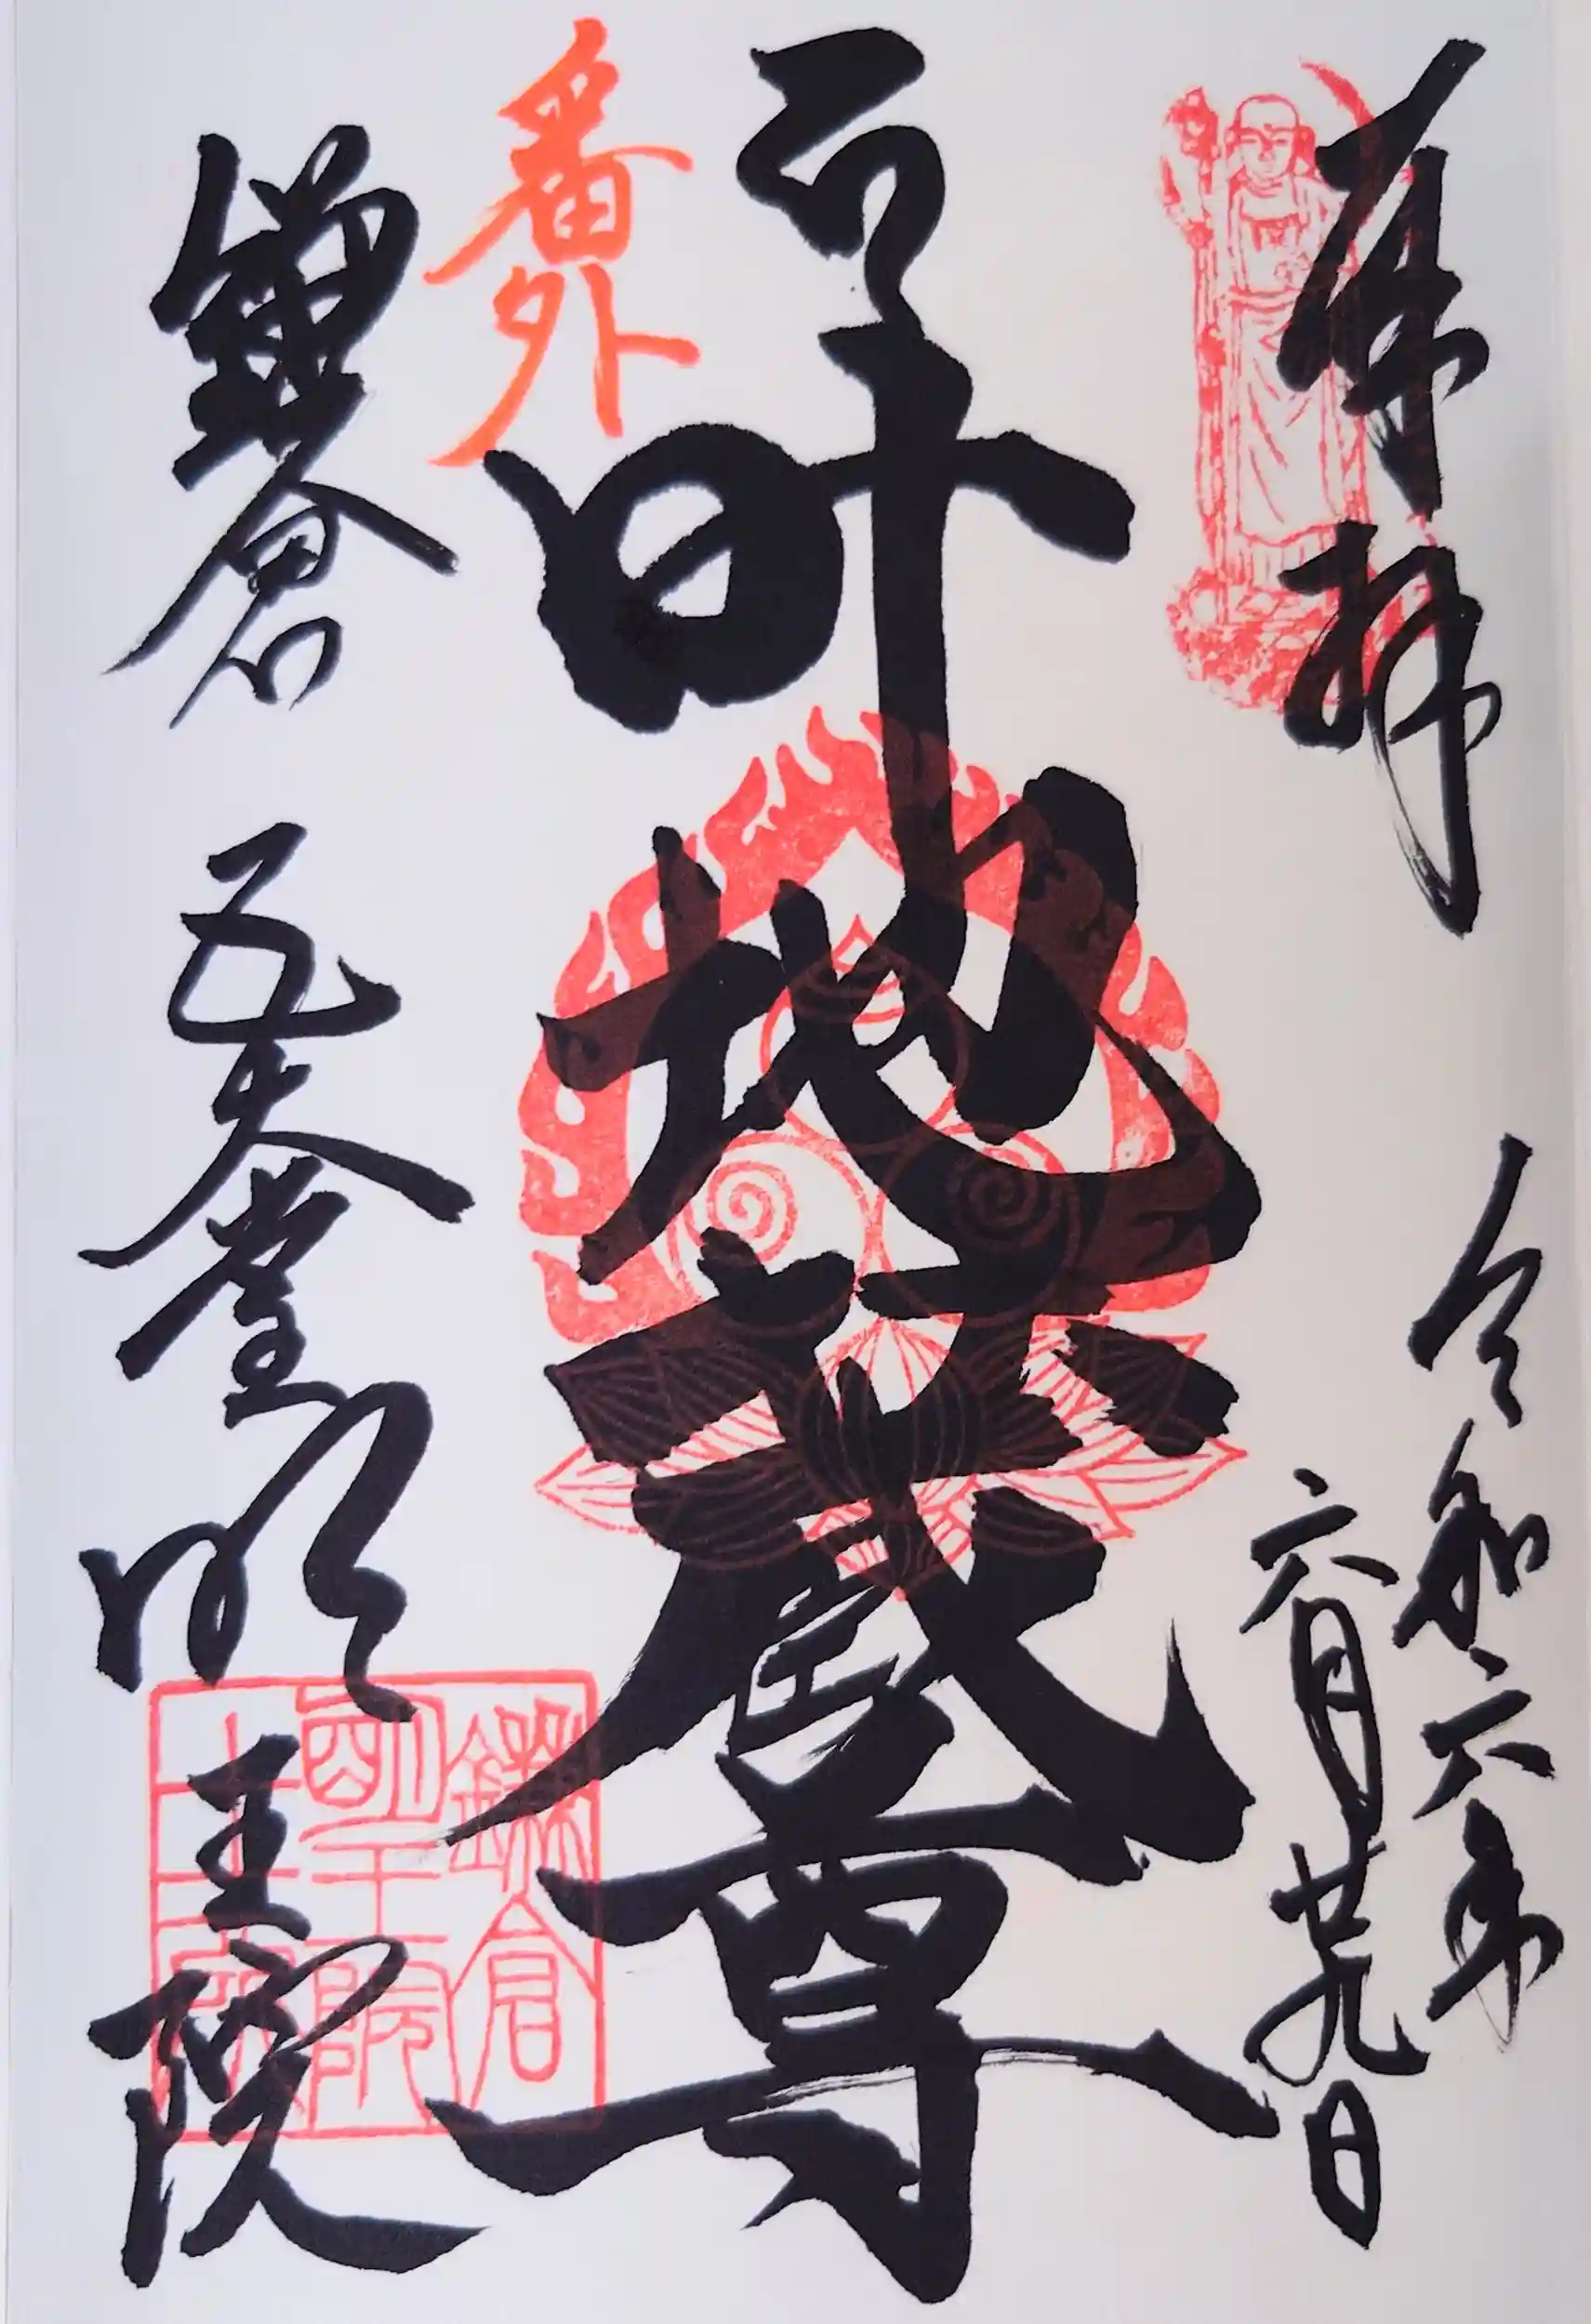 奉拝
令和六年
六月廿九日
ह
叶地蔵尊
番外
鎌倉 五大堂 明王院
鎌倉
明王院
十二所